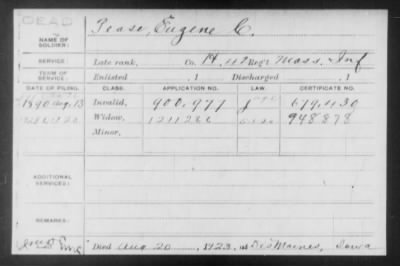 DEAD
NAME OF SOLDIER: Pease, Eugene C.
SERVICE: Late rank, Co. H, Reg't Mass. Inf
TERM OF SERVICE: Enlisted , 1 Discharged , 1
DATE OF FILING. CLASS. APPLICATION NO. LAW. CERTIFICATE NO.
1890 Aug. 13 Invalid, 900,977 679,430
Widow, 1211266 948878
Minor,
ADDITIONAL SERVICES:
REMARKS:
Died Aug 20, 1923, at Des Moines, Iowa